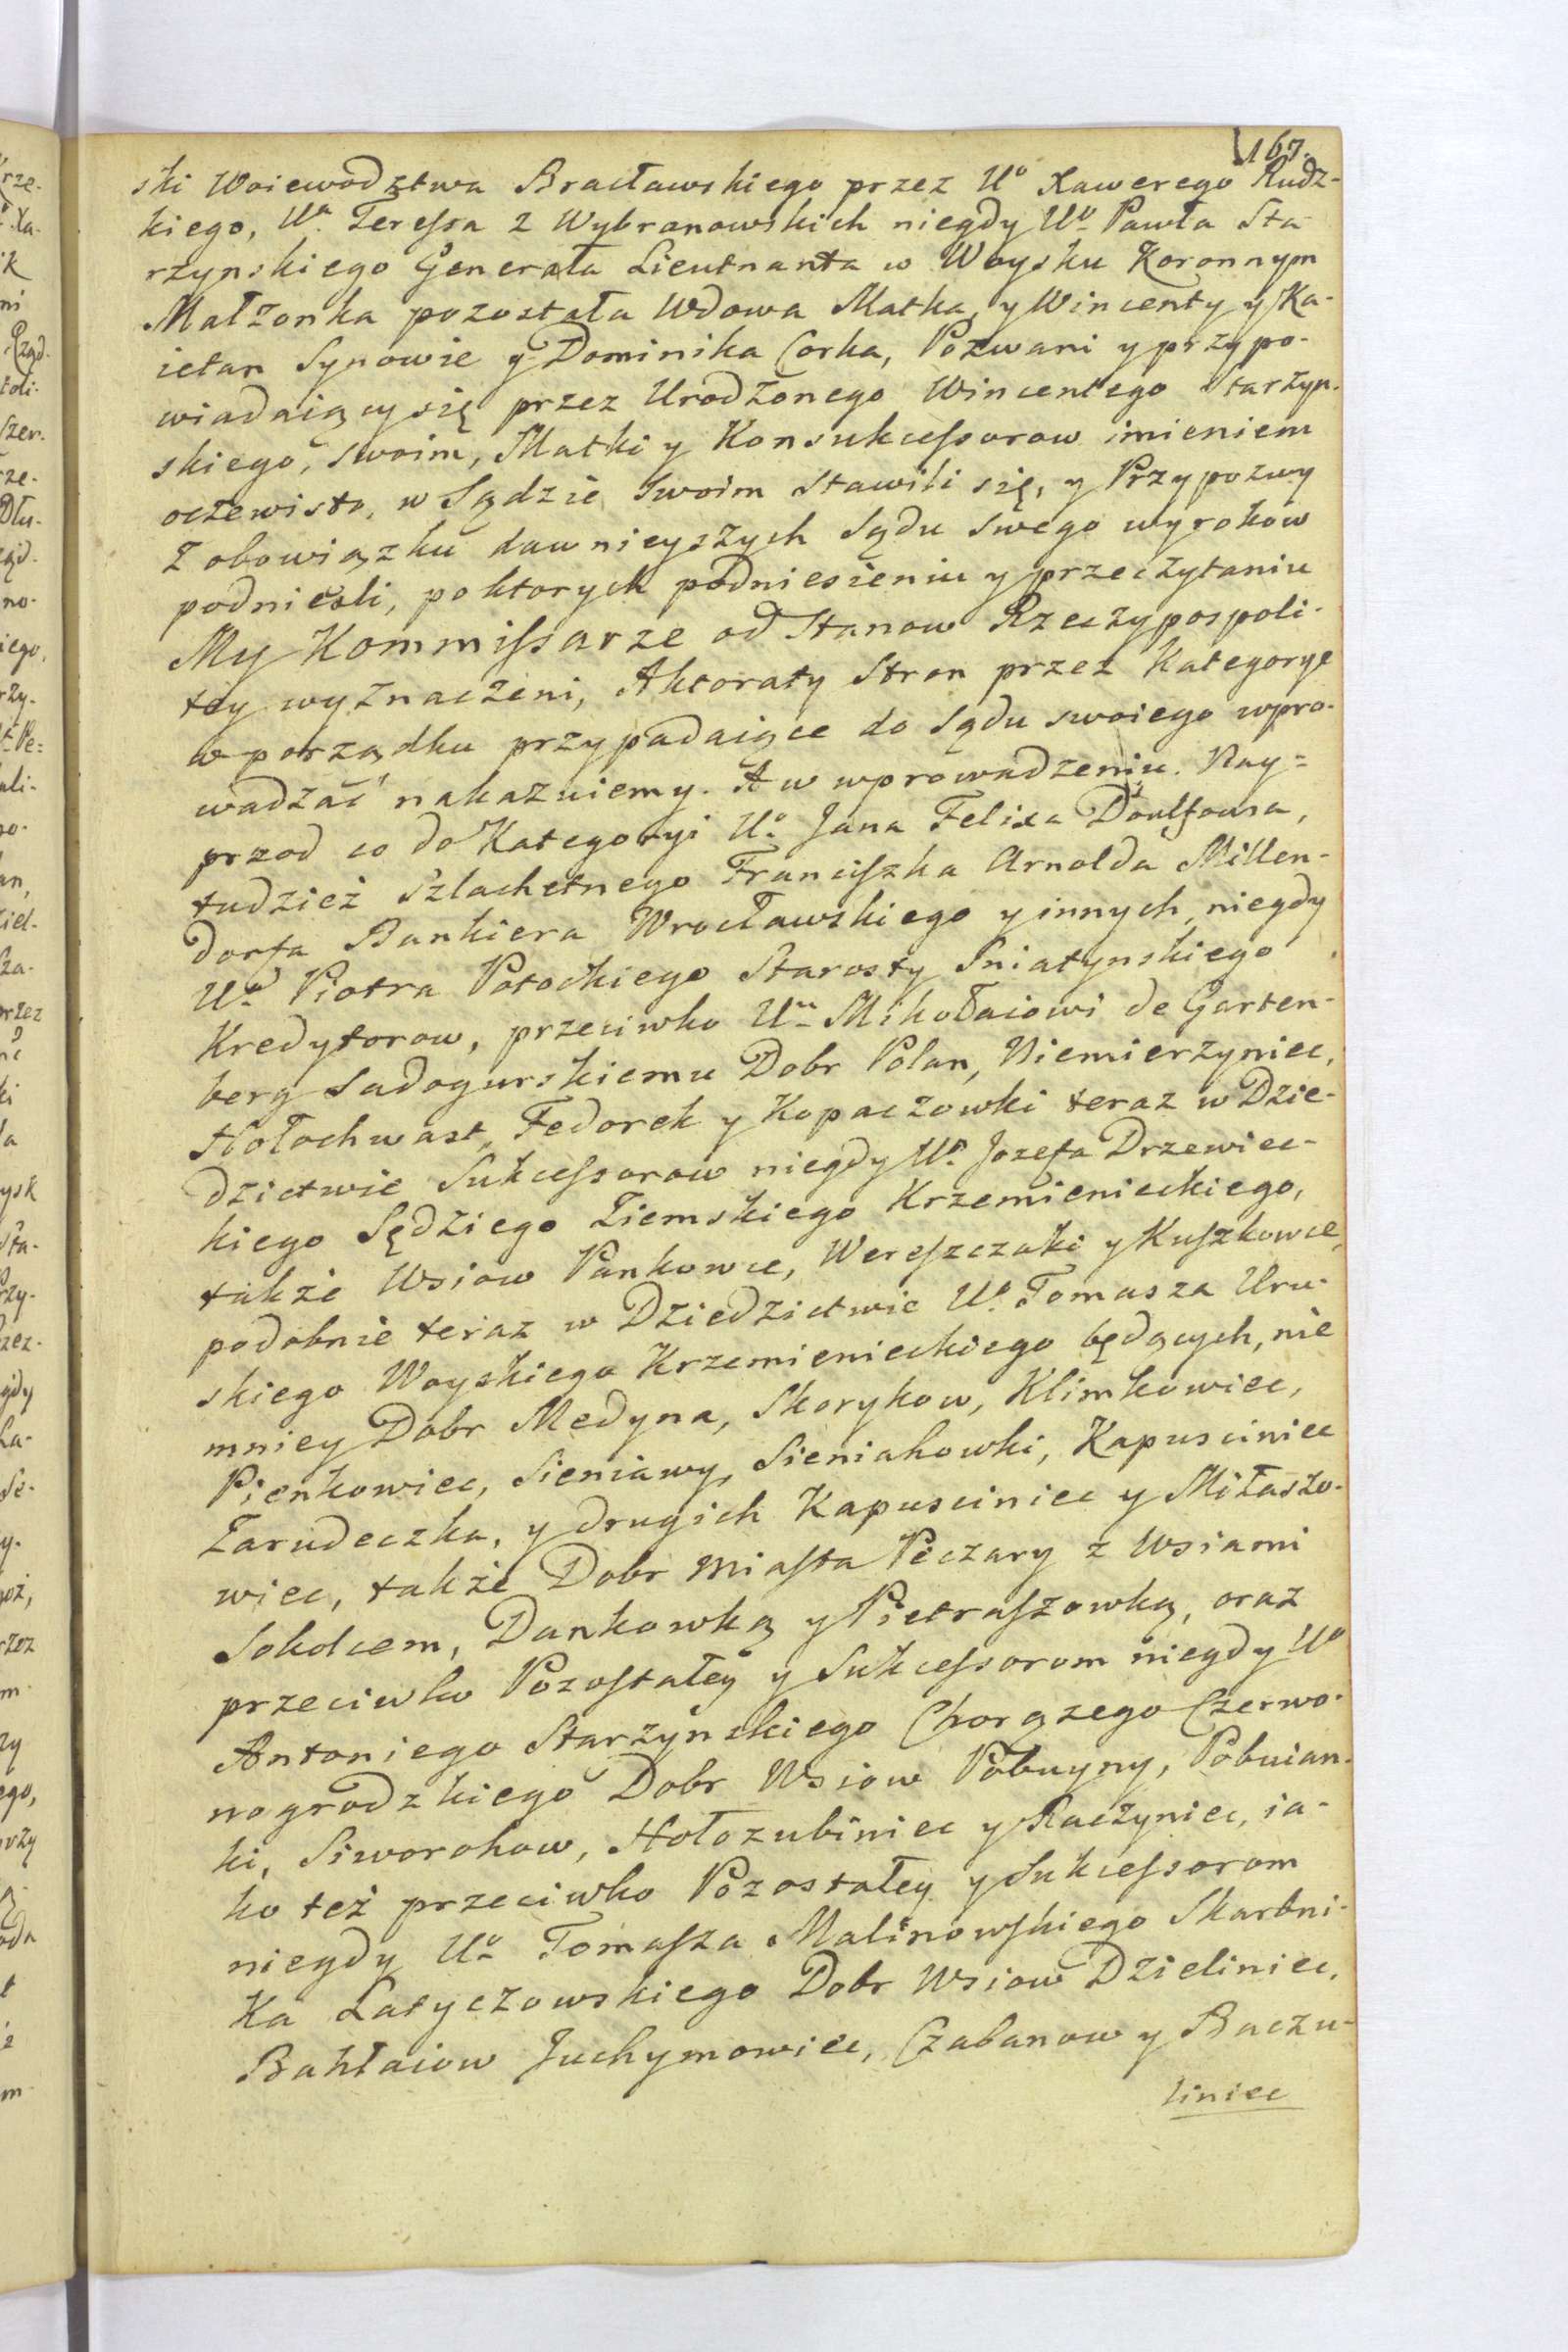 167.
ski Woiewodztwa Bracławskiego przez Uo Xawerego Rudz-
kiego, Ua Teressa z Wybranowskich niegdy Uo Pawła Sta-
rzynskiego Generała Lieutnanta w Woysku Koronnym
Małzonka pozostała Wdowa Matka, y Wincenty y Ka-
ietan Synowie y Dominika Corka, Pozwani y przypo-
wiadaiący się przez Urodzonego Wincentego Starzyn-
skiego, swoim, Matki y Konsukcessorow imieniem
oczewisto, w Sądzie Swoim Stawili się, y Przypozwy
z obowiązku dawnieyszych Sądu Swego wyrokow
podnieśli, po ktorych podniesieniu y przeczytaniu
My Kommissarze od Stanow Rzeczypospoli-
tey wyznaczeni, Aktoraty Stron przez Kategorye
w porządku przypadaiące do Sądu swoiego wpro-
wadzać nakazuiemy. A w wprowadzeniu. Nay=
przod co do Kategoryi Uo Jana Felixa Doulfousa,
tudzież Szlachetnego Franciszka Arnolda Millen-
dorfa Bankiera Wrocławskiego y innych, niegdy
Uo Piotra Potockiego Starosty Sniatynskiego
Kredytorow, przeciwko Uu Mikołaiowi de Garten-
berg Sadogurskiemu Dobr Polan, Niemierzyniec,
Hołochwast, Fedorek y Kopaczowki teraz w Dzie-
dzictwie Sukcessorow niegdy Uo Jozefa Drzewiec-
kiego Sędziego Ziemskiego Krzemienieckiego,
także Wsiow Pankowce, Wereszczaki y Kuszkowce,
podobnie teraz w Dziedzictwie Uo Tomasza Uru-
skiego Woyskiego Krzemienieckiego będących, nie
mniey Dobr Medyna, Skorykow, Klimkowiec,
Pienkowiec, Sieniawy, Sieniakowki, Kapusciniec
Zarudeczka, y drugich Kapusciniec y Miłaszo-
wiec, także Dobr Miasta Peczary z Wsiami
Sokolcem, Dankowką y Pietraszowką, oraz
przeciwko Pozostałey y Sukcessorom niegdy Uo
Antoniego Starzynskiego Chorązego Czerwo-
nogrodzkiego Dobr Wsiow Pobuyny, Pobuian-
ki, Siworohow, Hołozubiniec y Raczyniec, ia-
ko też przeciwko Pozostałey y Sukcessorom
niegdy Uo Tomasza Malinowskiego Skarbni-
ka Latyczowskiego Dobr Wsiow Dzieliniec,
Bahłaiow Juchymowiec, Czabanow y Baczu-
liniec